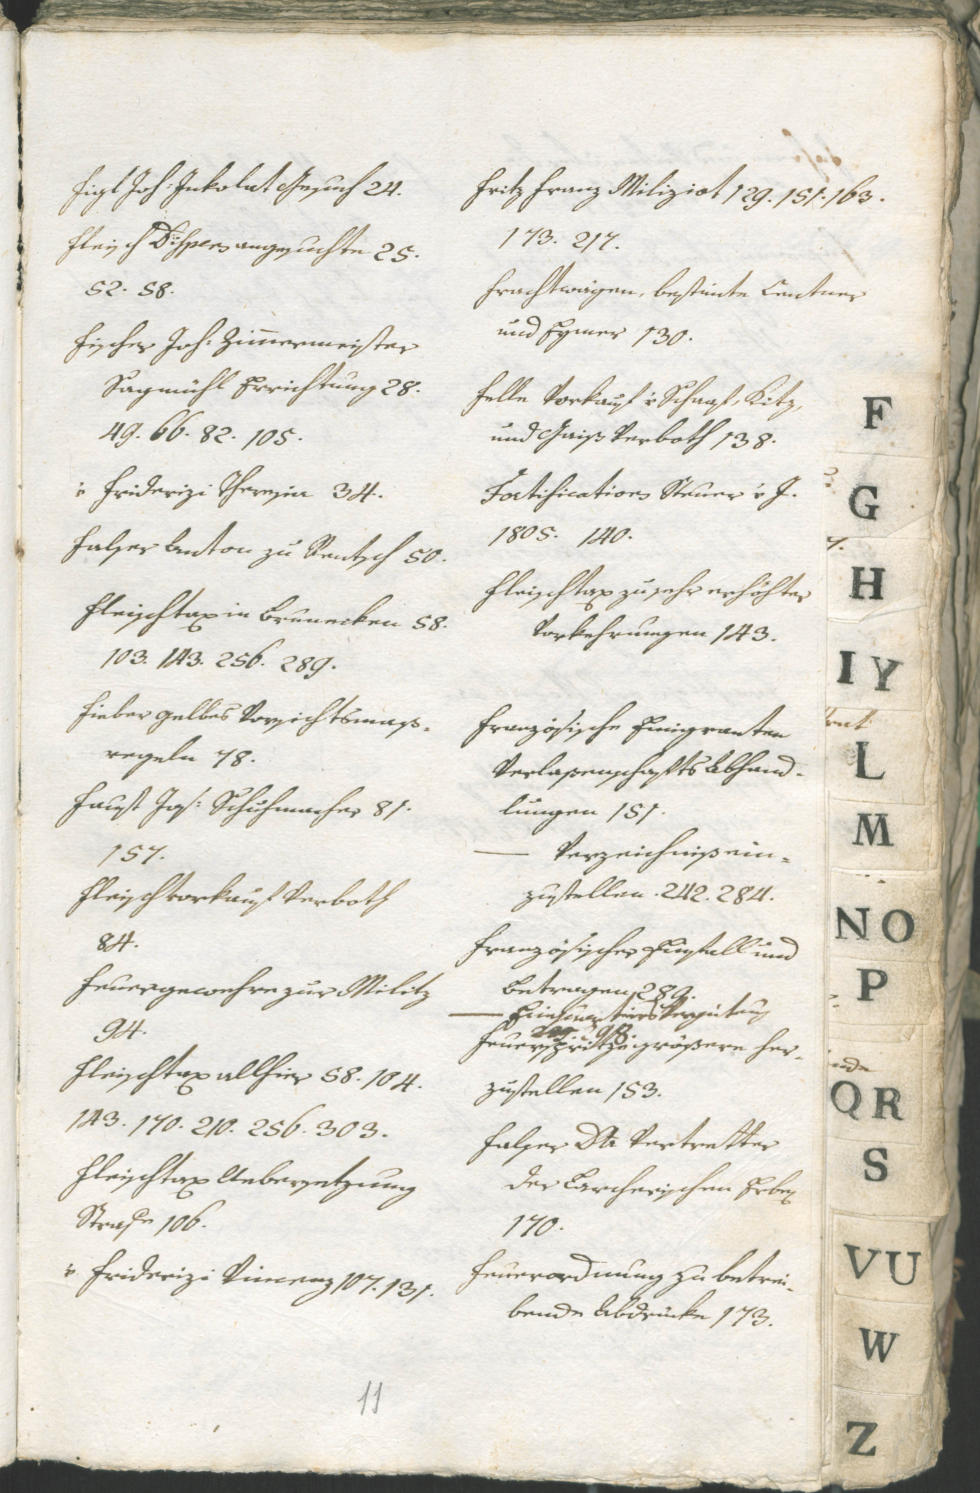 Figl Joh: Inkolat Gesuch 24.
Fleisch Dispens angesuchte 25.
52. 58.
Fischer Joh: Zim̅ermeister
Sagmühl Errichtung 28.
49. 66. 82. 105.
v Friderizi Theresia 34.
Falser Anton zu Rentsch 50.
Fleischtax in Brunecken 58.
103. 143. 256. 289.
Fieber gelbes Vorsichtsmaß-
regeln 78.
Faust Jos: Schuhmacher 81.
157.
Fleischvorkauf Verboth
84.
Feuergewehre zur Militz
94.
Fleischtax allhier 58. 104.
143. 170. 210. 256. 303.
Fleischtax Uebersetzung
Strafe 106.
v Friderizi Vincenz 107. 131.
Fritz Franz Miliziot 129. 151. 163.
173. 217.
Frachtwägen, bestimte Centner
und Eymer 130.
Felle Vorkauf v Schaaf, Kitz,
und Gaiß Verboth 138.
Fortifications Steuer v J.
1805. 140.
Fleischtax zu sehr erhöhter
Vorkehrungen 143.
Französische Emigranten
Verlaßenschafts Abhand-
lungen 151.
— Verzeichniß ein-
zustellen. 242. 284.
Französischer Einfall und
Betragen 289.
— Einquartiers Vergütung
Feuerspritze größere her-
zustellen 153.
Falser Dr Vertretter
der Larcherischen Erben
170.
Feuerordnung zu betrei-
bende Abdrücke 173.
11
F
G
H
I Y
L
M
N O
P
Q R
S
V U
W
Z